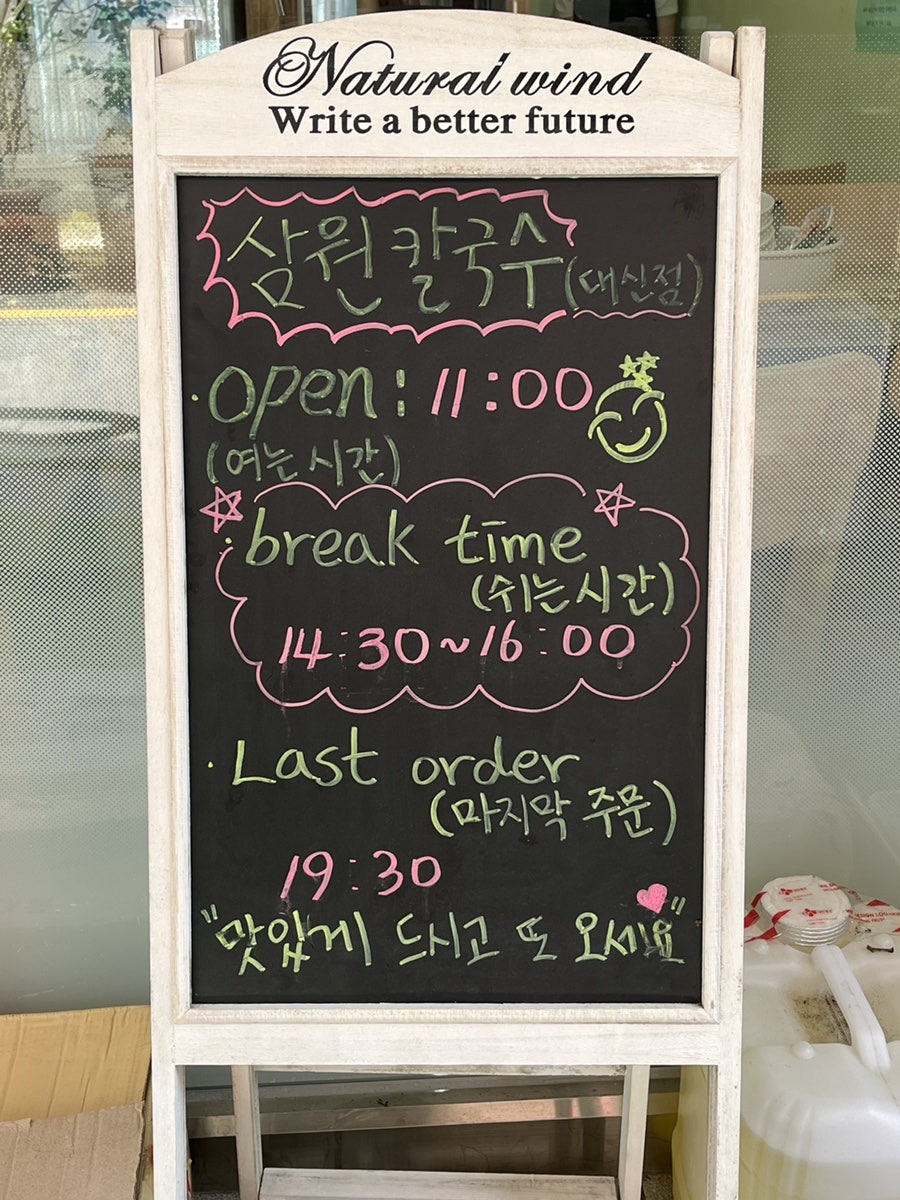 Natural wind
Write a better future
삼원칼국수(대신점)
· open : 11:00
(여는 시간)
· break time
(쉬는시간)
14:30~16:00
· Last order
(마지막 주문)
19:30
"맛있게 드시고 또 오세요"